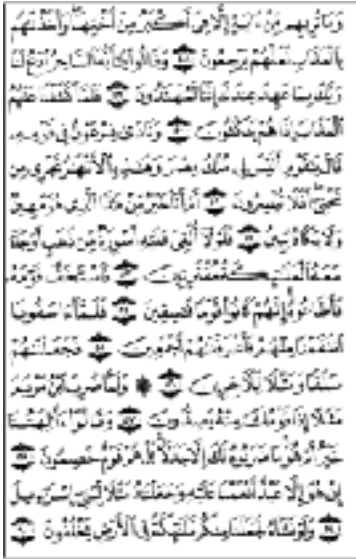 وَمَا نُرِيهِم مِّنْ ءَايَةٍ إِلَّا هِىَ أَكْبَرُ مِنْ أُخْتِهَا وَأَخَذْنَٰهُم
بِٱلْعَذَابِ لَعَلَّهُمْ يَرْجِعُونَ وَقَالُوا۟ يَٰٓأَيُّهَ ٱلسَّاحِرُ ٱدْعُ لَنَا
رَبَّكَ بِمَا عَهِدَ عِندَكَ إِنَّنَا لَمُهْتَدُونَ فَلَمَّا كَشَفْنَا عَنْهُمُ
ٱلْعَذَابَ إِذَا هُمْ يَنكُثُونَ وَنَادَىٰ فِرْعَوْنُ فِى قَوْمِهِۦ
قَالَ يَٰقَوْمِ أَلَيْسَ لِى مُلْكُ مِصْرَ وَهَٰذِهِ ٱلْأَنْهَٰرُ تَجْرِى مِن
تَحْتِىٓ أَفَلَا تُبْصِرُونَ أَمْ أَنَا۠ خَيْرٌ مِّنْ هَٰذَا ٱلَّذِى هُوَ مَهِينٌ
وَلَا يَكَادُ يُبِينُ فَلَوْلَآ أُلْقِىَ عَلَيْهِ أَسْوِرَةٌ مِّن ذَهَبٍ أَوْ جَآءَ
مَعَهُ ٱلْمَلَٰٓئِكَةُ مُقْتَرِنِينَ فَٱسْتَخَفَّ قَوْمَهُۥ
فَأَطَاعُوهُ إِنَّهُمْ كَانُوا۟ قَوْمًا فَٰسِقِينَ فَلَمَّآ ءَاسَفُونَا
ٱنتَقَمْنَا مِنْهُمْ فَأَغْرَقْنَٰهُمْ أَجْمَعِينَ فَجَعَلْنَٰهُمْ
سَلَفًا وَمَثَلًا لِّلْءَاخِرِينَ وَلَمَّا ضُرِبَ ٱبْنُ مَرْيَمَ
مَثَلًا إِذَا قَوْمُكَ مِنْهُ يَصِدُّونَ وَقَالُوٓا۟ ءَأَٰلِهَتُنَا
خَيْرٌ أَمْ هُوَ مَا ضَرَبُوهُ لَكَ إِلَّا جَدَلًۢا بَلْ هُمْ قَوْمٌ خَصِمُونَ
إِنْ هُوَ إِلَّا عَبْدٌ أَنْعَمْنَا عَلَيْهِ وَجَعَلْنَٰهُ مَثَلًا لِّبَنِىٓ إِسْرَٰٓءِيلَ
وَلَوْ نَشَآءُ لَجَعَلْنَا مِنكُم مَّلَٰٓئِكَةً فِى ٱلْأَرْضِ يَخْلُفُونَ